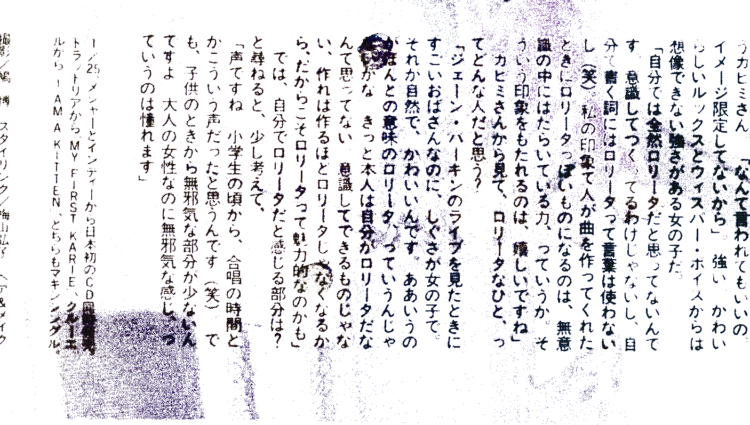 うカヒミさん 「なんて言われてもいいの。
イメージ限定してないから」 強い かわい
らしいルックスとウィスパー・ボイスからは
想像できない強さがある女の子だ。
「自分では全然ロリータだと思ってないんて
す 意識してつく てるわけじゃないし、自
分て書く詞にはロリータって言葉は使わない
し（笑） 私の印象て人が曲を作ってくれた
ときにロリータっぽいものになるのは、無意
識の中にはたらいている力、っていうか。そ
ういう印象をもたれるのは、嬉しいですね」
カヒミさんから見て、ロリータなひと、っ
てどんな人だと思う？
「ジェーン・バーキンのライブを見たときに
すごいおばさんなのに、しぐさが女の子で。
それか自然で、かわいいんです。ああいうの
がほんとの意味のロリータ、っていうんじゃ
ないかな きっと本人は自分がロリータだな
んて思ってない 意識してできるものじゃな
い、作れは作るほとロリータじゃなくなるか
ら、だからこそロリータって魅力的なのかも」
では、自分でロリータだと感じる部分は？
と尋ねると、少し考えて、
「声ですね 小学生の頃から、合唱の時間と
かこういう声だったと思うんです（笑） で
も、子供のときから無邪気な部分か少ないん
てすよ 大人の女性なのに無邪気な感じ、っ
ていうのは憧れます」
1／25 メシャーとインディーから日本初のCD
トラットリアから MY FIRST KARIE クルーエ
ルから I AM A KITTEN どちらもマキシ シングル。
撮影／鳩 博 スタイリンク／梅山弘子 ヘア&メイク